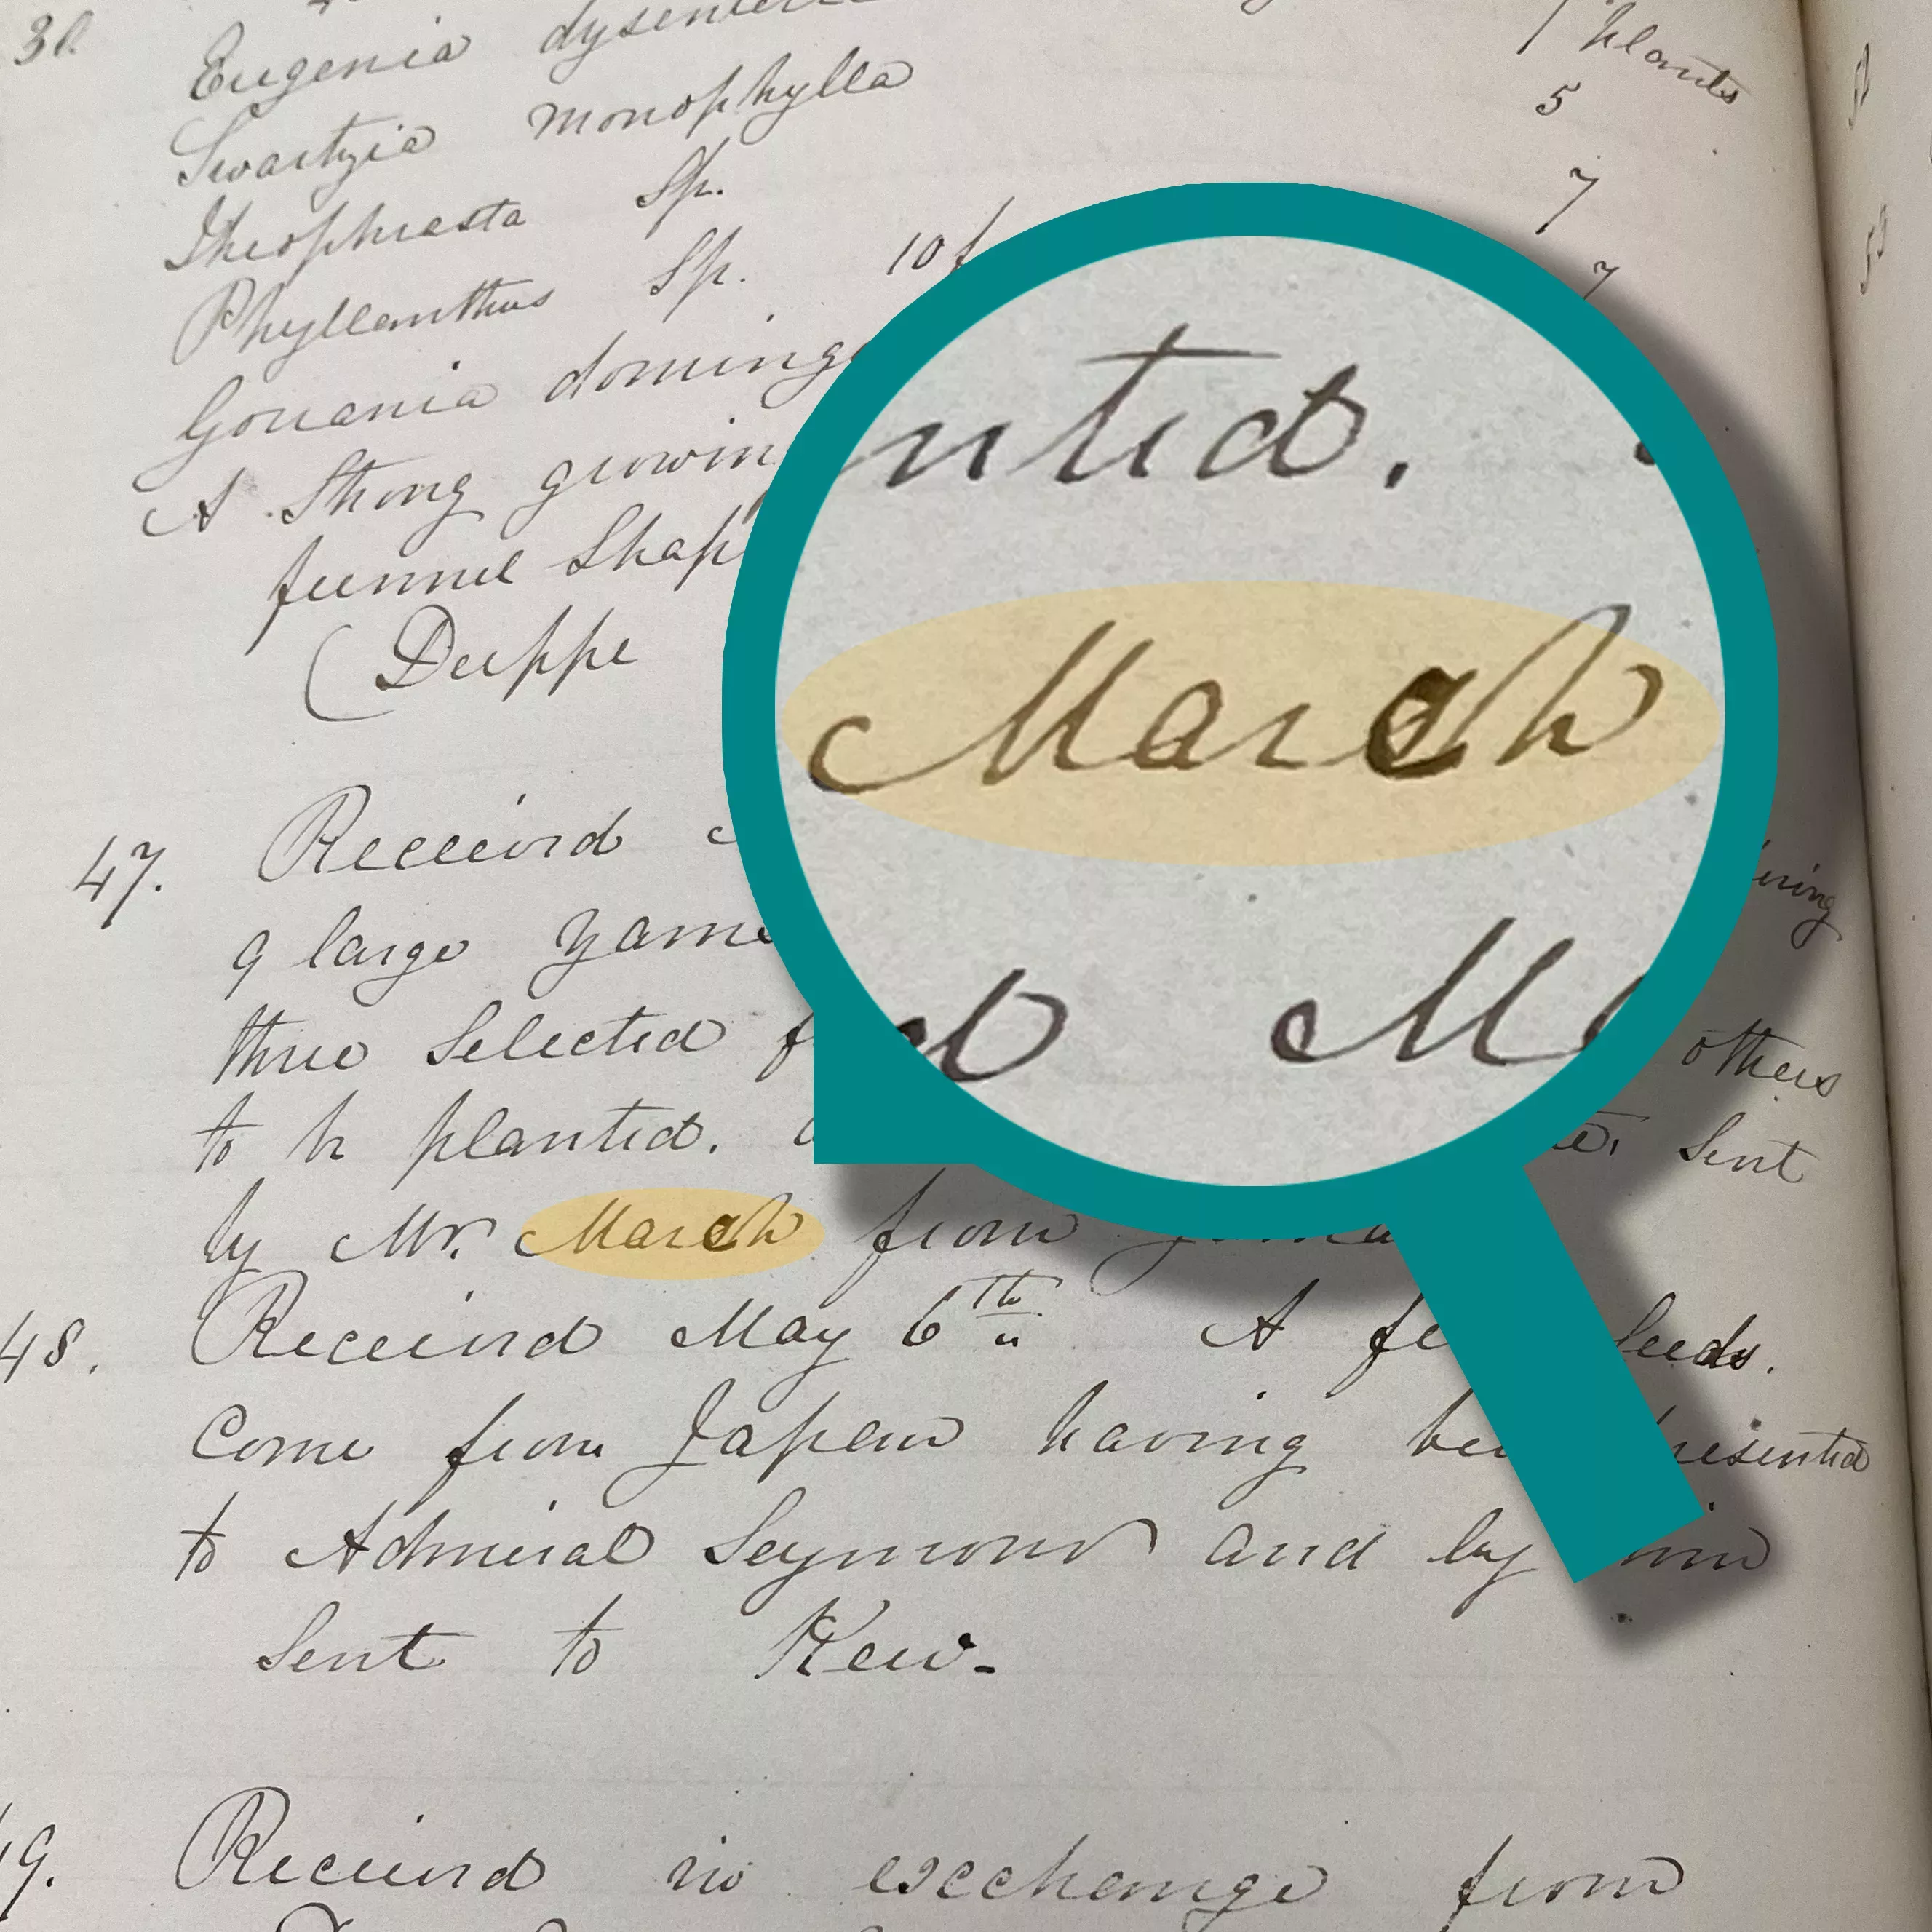 30.
Eugenia
1 plants
Swartzia monophylla 5
Theophrasta Sp. 7
Phyllanthus Sp. 10 f 7
Gouania doming
A Strong growin
funnel Shap
(Deppe
47. Received
9 large yams
three Selected f others
to be planted. Sent
by Mr. March from
48. Received May 6th A few seeds.
Come from Japan having been presented
to Admiral Seymour and by him
Sent to Kew.
49. Received in exchange from
nted.
March
d M